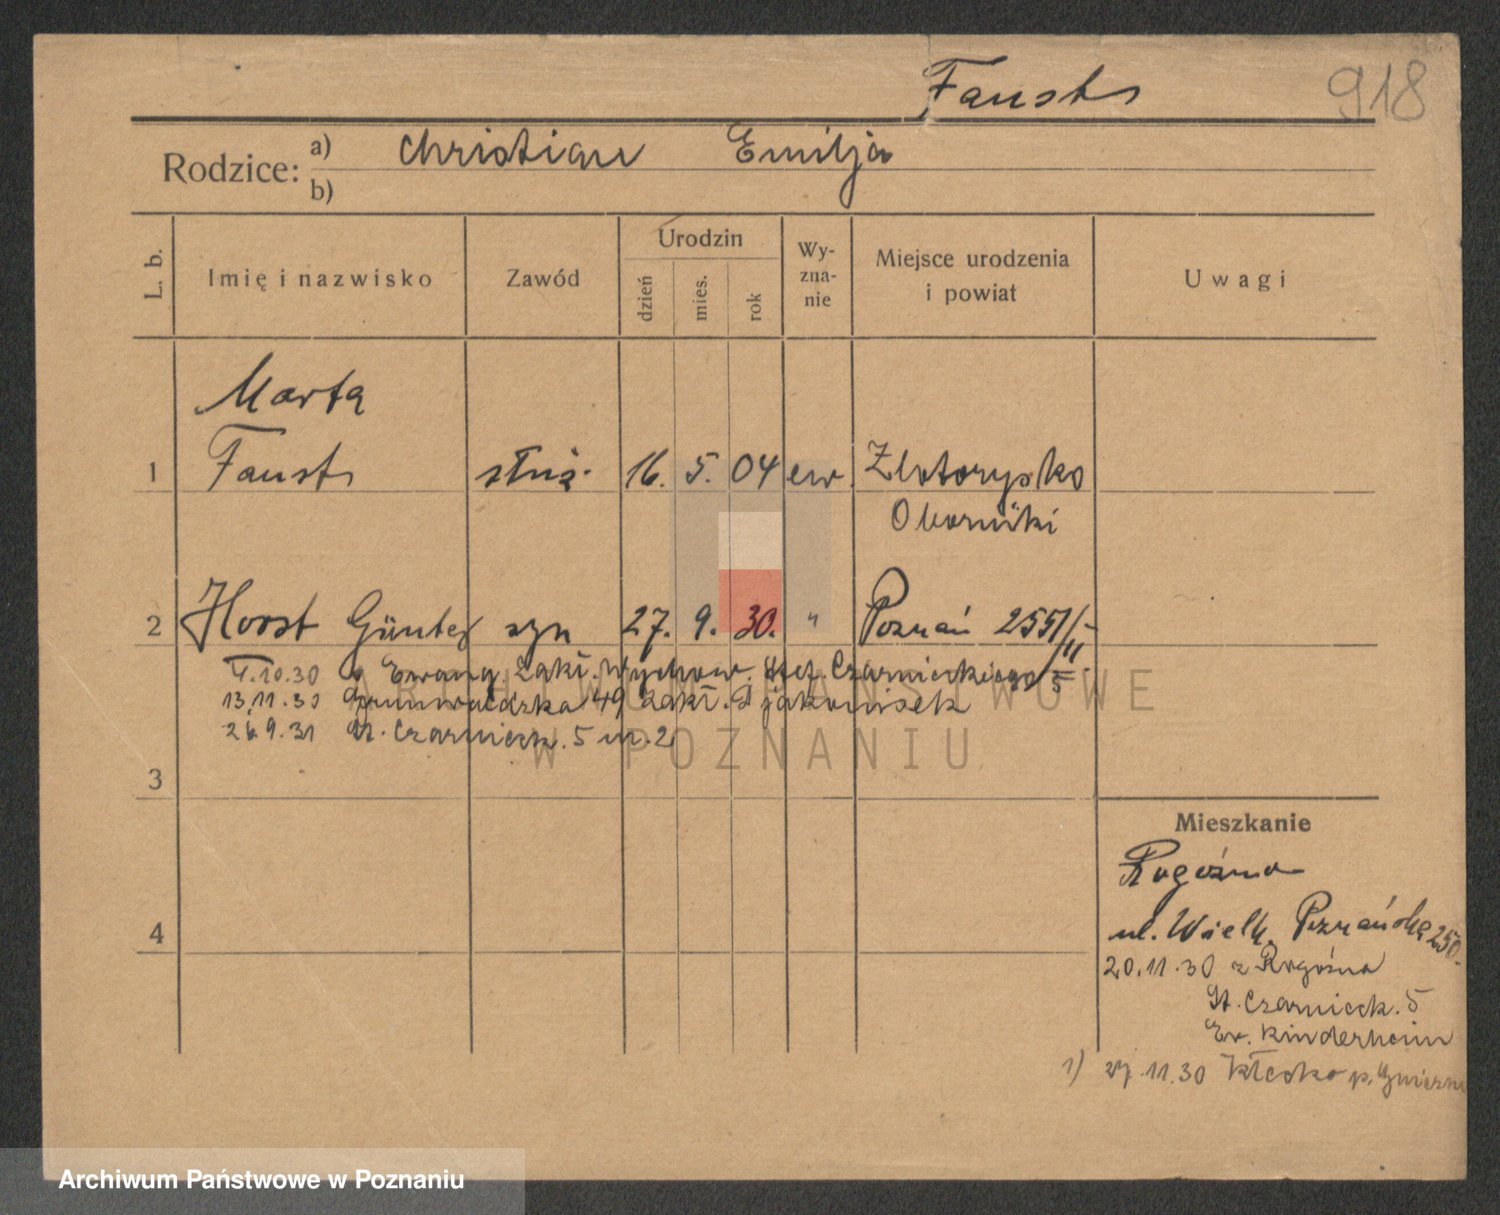 Faust
918
Rodzice: a) Christian Emilja
b)
L. b.
Imię i nazwisko
Zawód
Urodzin
dzień
mies.
rok
Wy-
zna-
nie
Miejsce urodzenia
i powiat
Uwagi
Marta
1 Faust służ. 16. 5. 04 ew. Złotorysko
Oborniki
2 Horst Günter syn 27. 9. 30. " Poznań 2551/II
10.30 Ewang. Zakł. Wychow. Stef. Czarnieckiego 5
13.11.30 Grunwaldzka 49 Zakł. Djakonisek
26.9.31 St. Czarnieck. 5 m. 2
3
ARCHIWUM PAŃSTWOWE
W POZNANIU
Mieszkanie
Rogoźno
4
ul. Wielk. Poznańska 250.
20.11.30 z Rogoźna
St. Czarnieck. 5
Ev. Kinderheim
1) 27.11.30 Kłecko p. Gniezn
Archiwum Państwowe w Poznaniu